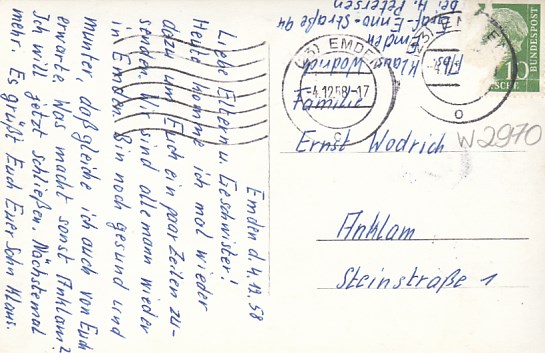 Emden d. 4.12.58
Liebe Eltern u. Geschwister!
Heute komme ich mal wieder
dazu um Euch ein paar Zeilen zu-
senden. Wir sind alle mann wieder
in Emden. Bin noch gesund und
munter, daß gleiche ich auch von Euch
erwarte. Was macht sonst Anklam?
Ich will jetzt schließen. Nächstemal
mehr. Es grüßt Euch Euer Sohn Klaus.
Klaus Wodrich
Emden
Graf-Enno-Straße 94
bei H. Petersen
(23) EMDEN
-4.12.58-17
c
Familie
Ernst Wodrich
Anklam
Steinstraße 1
W2970
10
DEUTSCHE
BUNDESPOST